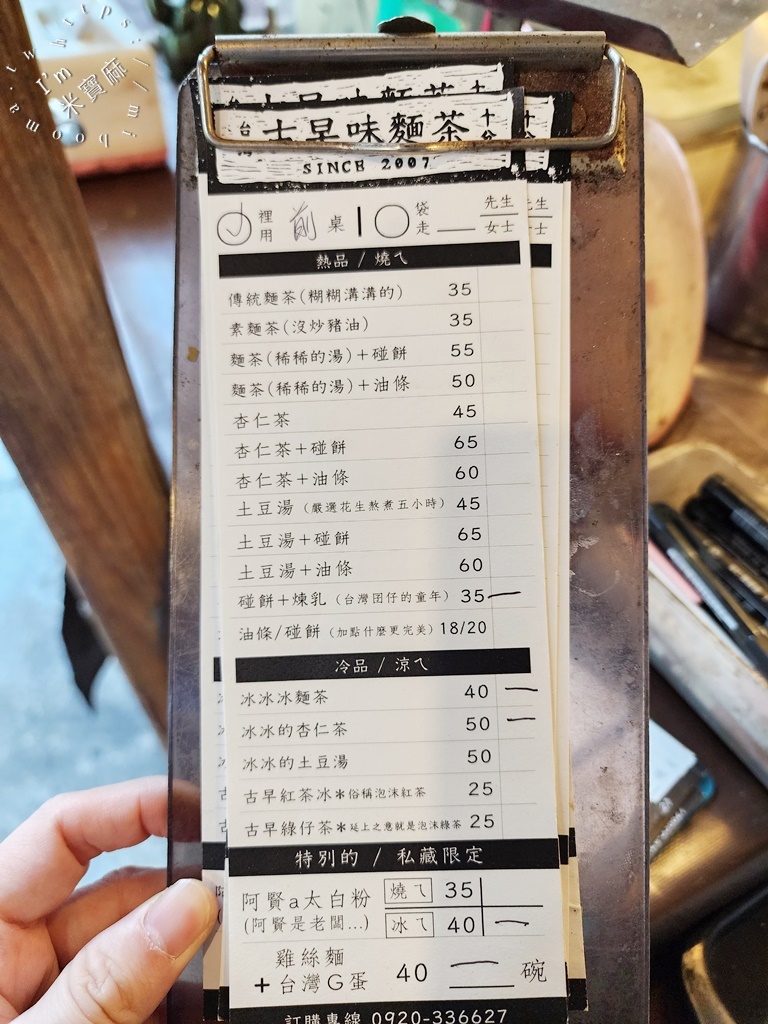 I'm 米寶麻
台灣 古早味麵茶 十分
SINCE 2007
裡用 前桌 | 袋走 先生 女士
熱品 / 燒ㄟ
傳統麵茶(糊糊溝溝的) 35
素麵茶(沒炒豬油) 35
麵茶(稀稀的湯)+碰餅 55
麵茶(稀稀的湯)+油條 50
杏仁茶 45
杏仁茶+碰餅 65
杏仁茶+油條 60
土豆湯(嚴選花生熬煮五小時) 45
土豆湯+碰餅 65
土豆湯+油條 60
碰餅+煉乳(台灣囝仔的童年) 35 一
油條/碰餅(加點什麼更完美) 18/20
冷品 / 涼ㄟ
冰冰冰麵茶 40 一
冰冰的杏仁茶 50 一
冰冰的土豆湯 50
古早紅茶冰*俗稱泡沫紅茶 25
古早綠仔茶*延上之意就是泡沫綠茶 25
特別的 / 私藏限定
阿賢a太白粉 燒ㄟ 35
(阿賢是老闆...) 冰ㄟ 40 一
雞絲麵
+台灣G蛋 40 一 碗
訂購專線 0920-336627